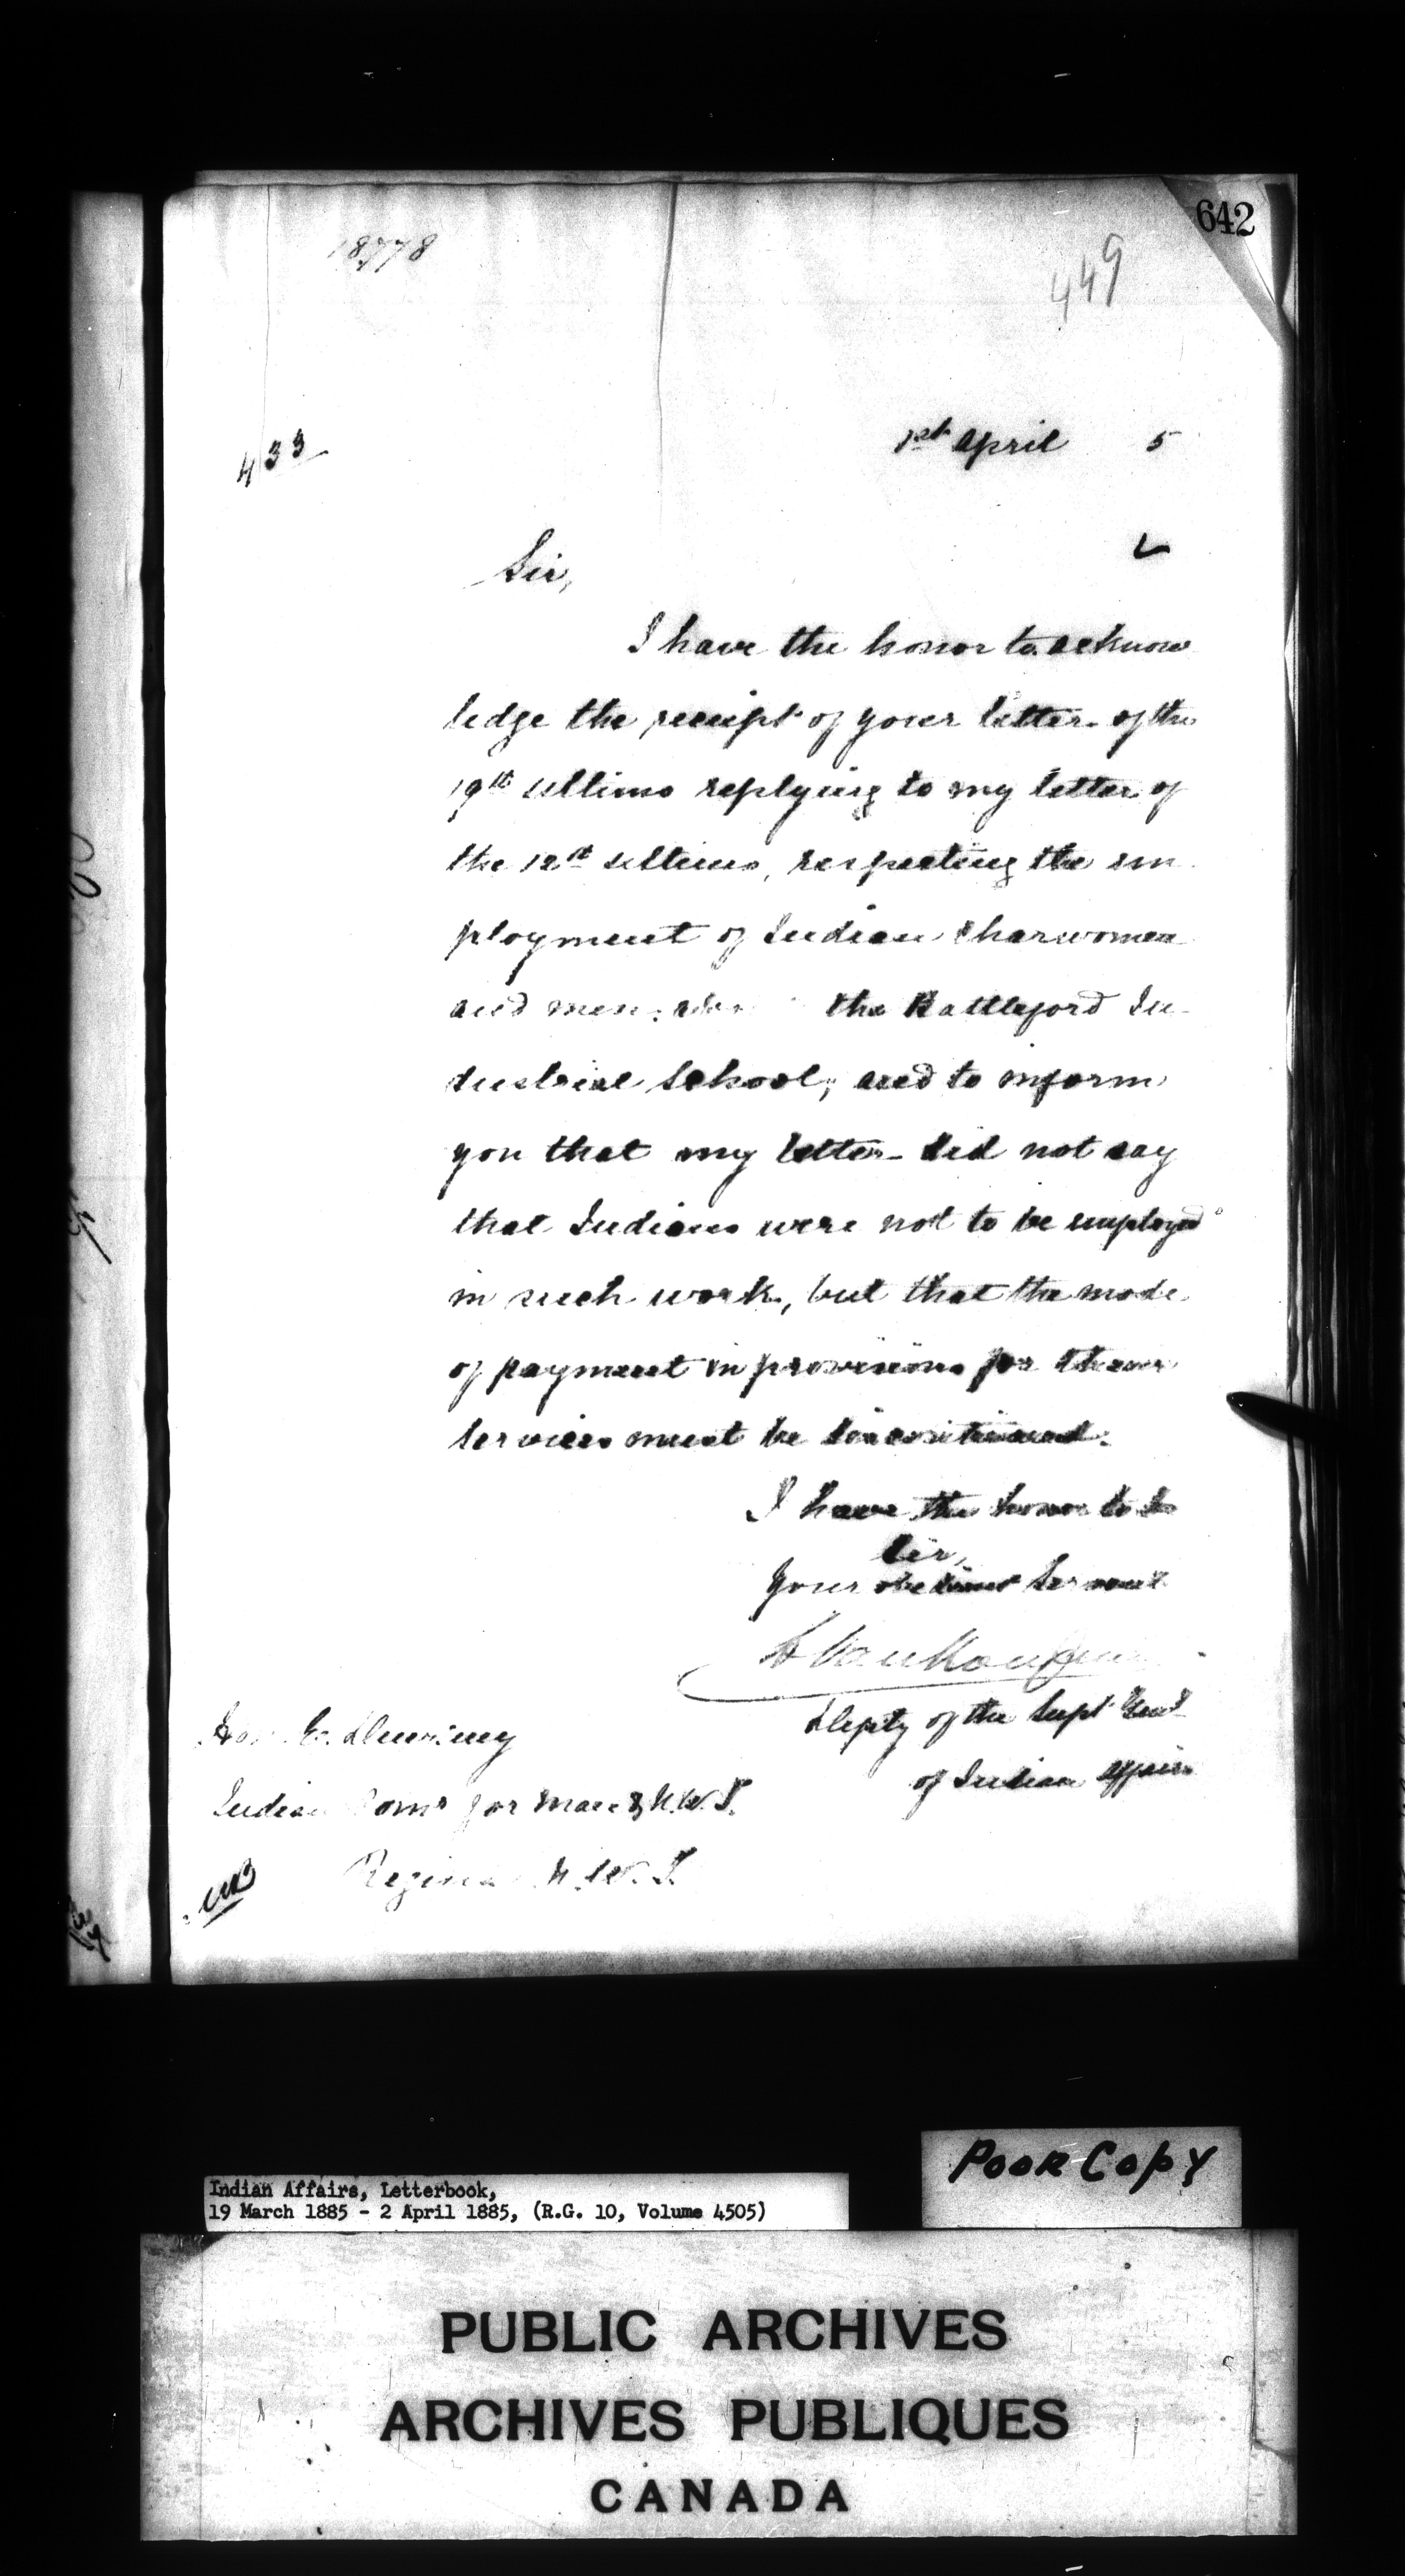 642
18778
449
433
1st April 5
Sir,
I have the honor to acknow
ledge the receipt of your letter of the
19th ultimo replying to my letter of
the 12th ultimo, respecting the em
ployment of Indian Charwomen
and men the Battleford In-
dustrial School; and to inform
you that my letter did not say
that Indians were not to be employed
in such work, but that the mode
of payment in provisions for their
services must be discontinued.
I have the honor to be
Sir,
Your obedient Servant
L Vankoughnet
Deputy of the Supt Genl
of Indian Affairs
Hon. E. Dewdney
Indian Comr for Man & N.W.T.
Regina N.W.T.
Poor Copy
Indian Affairs, Letterbook,
19 March 1885 - 2 April 1885, (R.G. 10, Volume 4505)
PUBLIC ARCHIVES
ARCHIVES PUBLIQUES
CANADA